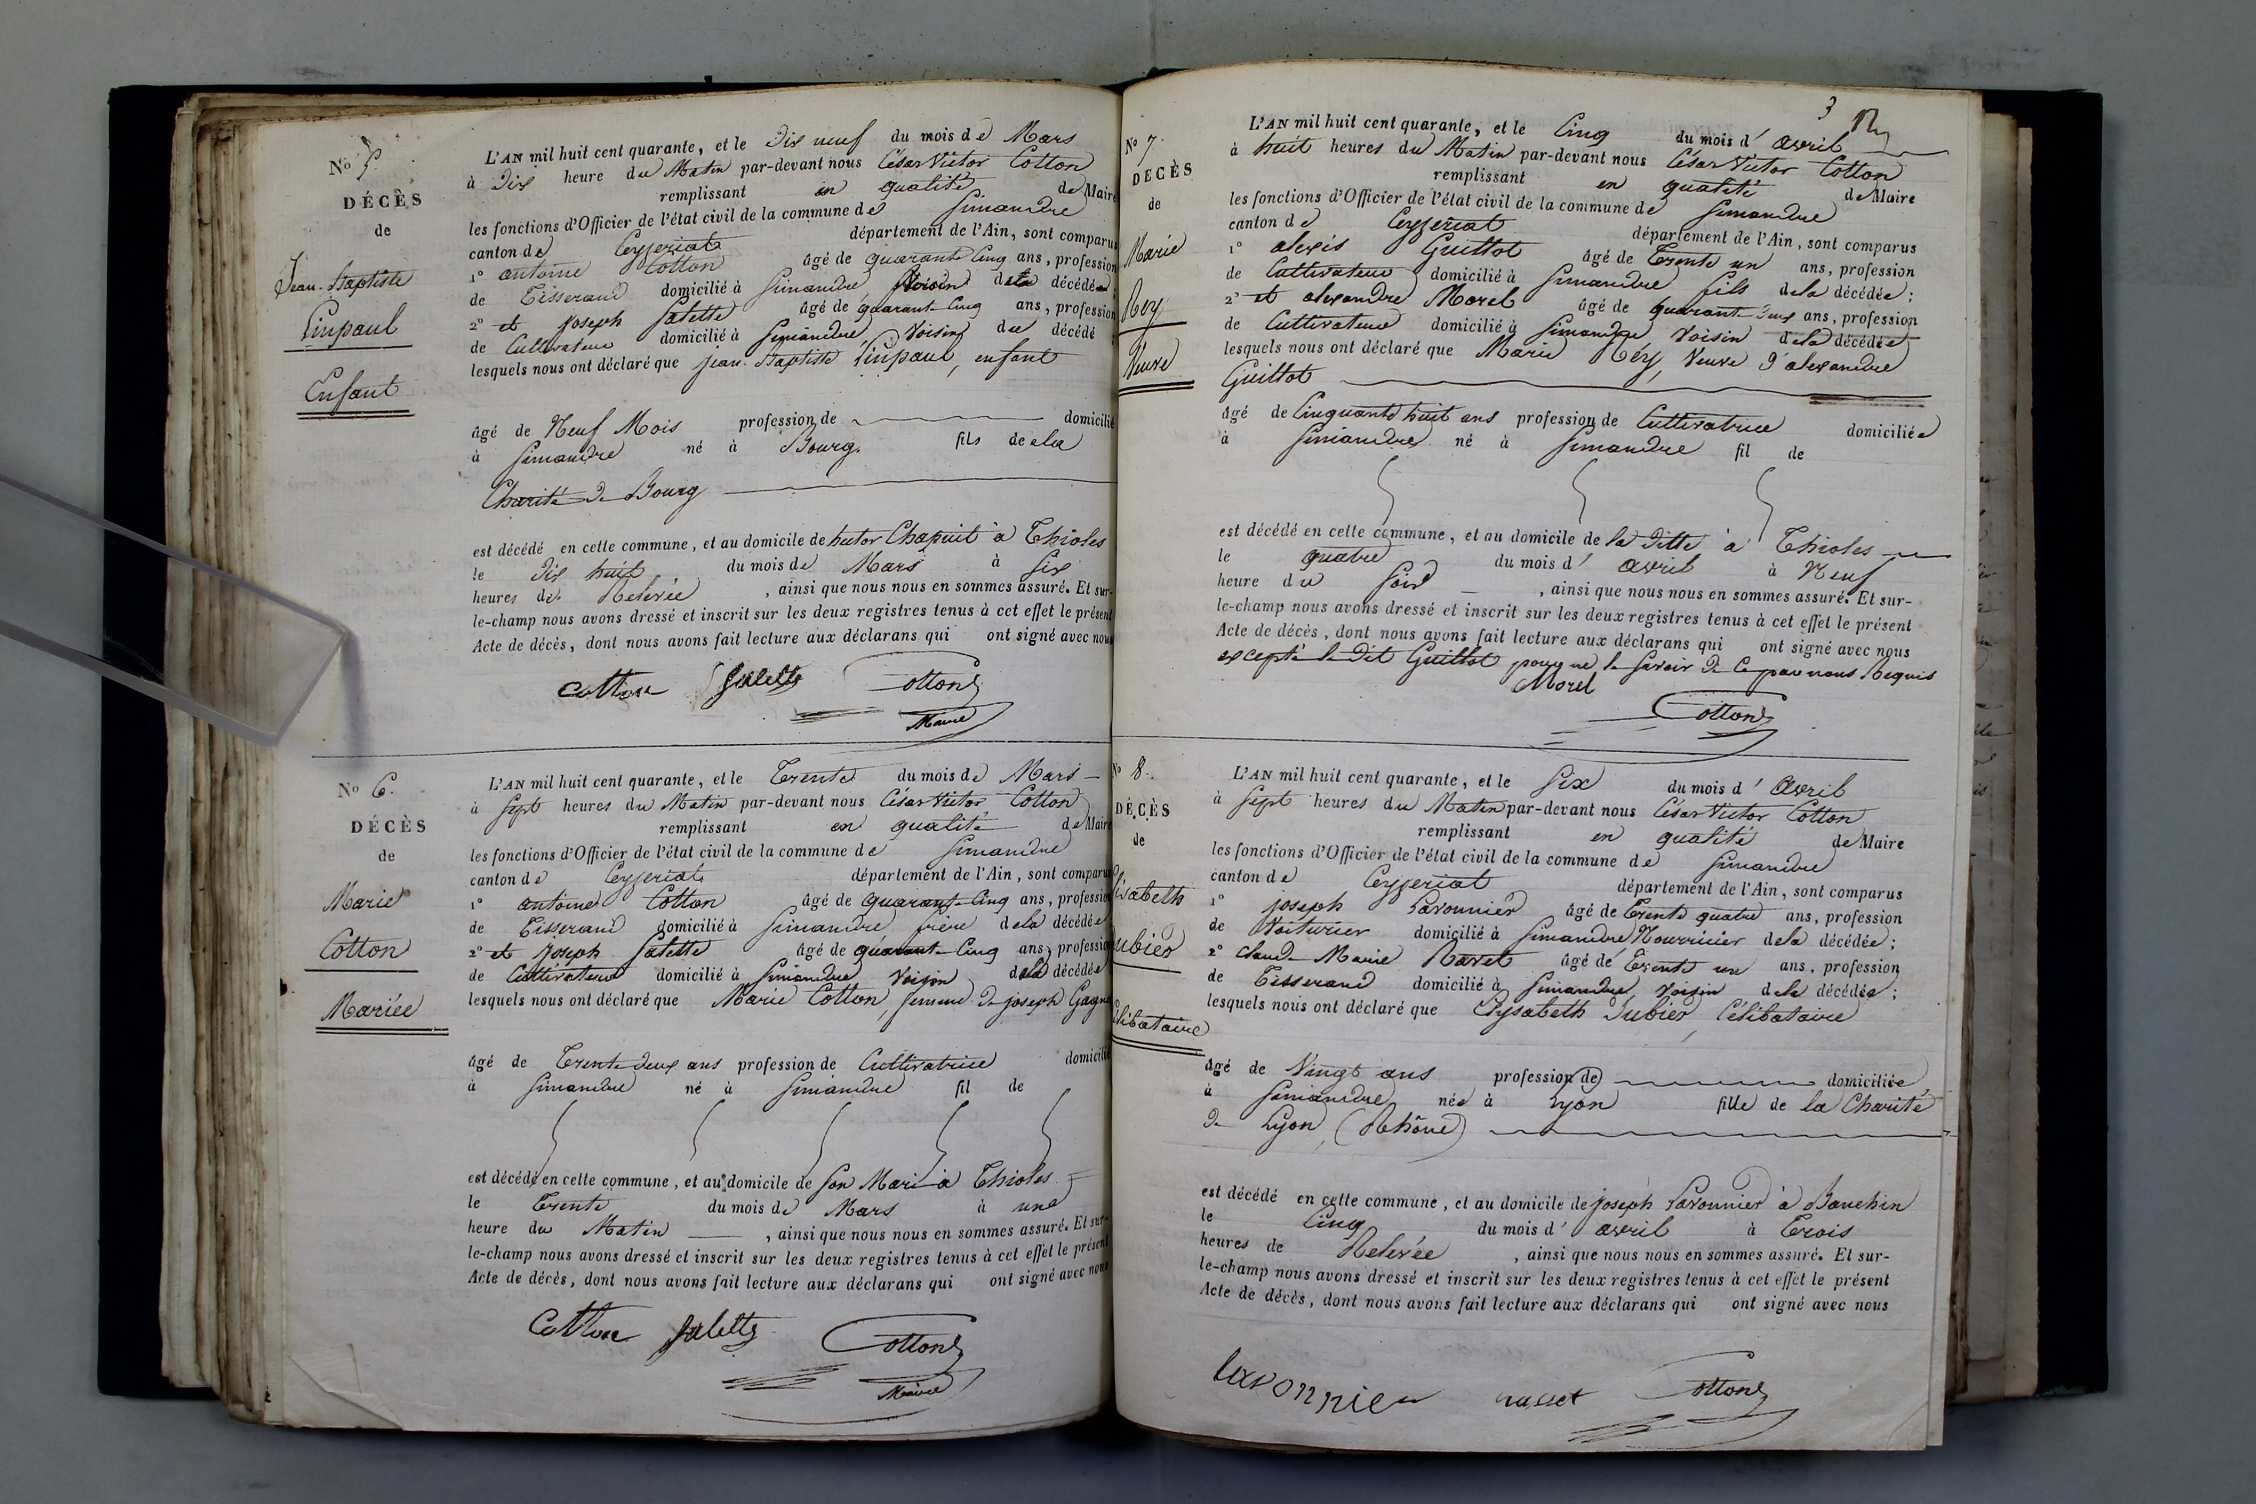 No 5.
DÉCÈS
de
Jean-Baptiste
Pinpaul
Enfant
L'AN mil huit cent quarante, et le Dix neuf du mois de Mars
à Dix heure du Matin par-devant nous César Victor Cotton
remplissant en qualité de Maire
les fonctions d'Officier de l'état civil de la commune de Simandre
canton de Ceyzeriat département de l'Ain, sont comparus
1° antoine Cotton âgé de quarante Cinq ans, profession
de Tisserand domicilié à Simandre Voisin de la décédé
2° et joseph Salette âgé de quarante Cinq ans, profession
de Cultivateur domicilié à Simandre, Voisin du décédé
lesquels nous ont déclaré que jean-Baptiste Pinpaul, enfant
âgé de Neuf Mois profession de domicilié
à Simandre né à Bourg. fils de la
Charité de Bourg
est décédé en cette commune, et au domicile de hector Chapuit à Thioles
le Dix huit du mois de Mars à Six
heures de Relevée, ainsi que nous nous en sommes assuré. Et sur-
le-champ nous avons dressé et inscrit sur les deux registres tenus à cet effet le présent
Acte de décès, dont nous avons fait lecture aux déclarans qui ont signé avec nous
Cotton Salette Cotton
Maire
No 6.
DÉCÈS
de
Marie
Cotton
Mariée
L'AN mil huit cent quarante, et le Trente du mois de Mars
à Sept heures du Matin par-devant nous César Victor Cotton
remplissant en qualité de Maire
les fonctions d'Officier de l'état civil de la commune de Simandre
canton de Ceyzeriat département de l'Ain, sont comparus
1° antoine Cotton âgé de quarante Cinq ans, profession
de Tisserand domicilié à Simandre frère de la décédée
2° et joseph Salette âgé de quarante Cinq ans, profession
de Cultivateur domicilié à Simandre Voisin de la décédée
lesquels nous ont déclaré que Marie Cotton, femme de joseph Gagne
âgé de Trente deux ans profession de Cultivatrice domicilié
à Simandre né à Simandre fil de
est décédé en cette commune, et au domicile de son Mari à Thioles
le Trente du mois de Mars à une
heure du Matin, ainsi que nous nous en sommes assuré. Et sur-
le-champ nous avons dressé et inscrit sur les deux registres tenus à cet effet le présent
Acte de décès, dont nous avons fait lecture aux déclarans qui ont signé avec nous
Cotton Salette Cotton
Maire
3
No 7.
DÉCÈS
de
Marie
Rey
Veuve
L'AN mil huit cent quarante, et le Cinq du mois d'avril
à huit heures du Matin par-devant nous César Victor Cotton
remplissant en qualité de Maire
les fonctions d'Officier de l'état civil de la commune de Simandre
canton de Ceyzeriat département de l'Ain, sont comparus
1° alexis Guillot âgé de Trente un ans, profession
de Cultivateur domicilié à Simandre fils de la décédée;
2° et alexandre Morel âgé de quarante deux ans, profession
de Cultivateur domicilié à Simandre Voisin de la décédée
lesquels nous ont déclaré que Marie Rey, Veuve d'alexandre
Guillot
âgé de Cinquante huit ans profession de Cultivatrice domiciliée
à Simandre né à Simandre fil de
est décédé en cette commune, et au domicile de la ditte à Thioles
le quatre du mois d'avril à Neuf
heure du Soir, ainsi que nous nous en sommes assuré. Et sur-
le-champ nous avons dressé et inscrit sur les deux registres tenus à cet effet le présent
Acte de décès, dont nous avons fait lecture aux déclarans qui ont signé avec nous
excepté le dit Guillot pour ne le savoir de ce par nous Requis
Morel
Cotton
No 8.
DÉCÈS
de
lisabeth
ubier
élibataire
L'AN mil huit cent quarante, et le Six du mois d'avril
à Sept heures du Matin par-devant nous César Victor Cotton
remplissant en qualité de Maire
les fonctions d'Officier de l'état civil de la commune de Simandre
canton de Ceyzeriat département de l'Ain, sont comparus
1° joseph Lavonnier âgé de Trente quatre ans, profession
de Voiturier domicilié à Simandre Nourricier de la décédée;
2° claude Marie Ravet âgé de Trente un ans, profession
de Tisserand domicilié à Simandre, Voisin de la décédée;
lesquels nous ont déclaré que Elysabeth Dubier, Célibataire
âgé de Vingt ans profession de domiciliée
à Simandre née à Lyon fille de la Charité
de Lyon, (Rhône)
est décédé en cette commune, et au domicile de joseph Lavonnier à Banchin
le Cinq du mois d'avril à Trois
heures de Relevée, ainsi que nous nous en sommes assuré. Et sur-
le-champ nous avons dressé et inscrit sur les deux registres tenus à cet effet le présent
Acte de décès, dont nous avons fait lecture aux déclarans qui ont signé avec nous
lavonnier Cotton